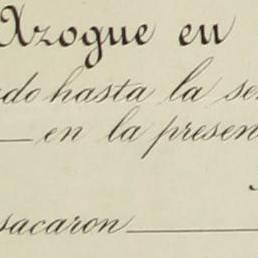 Azogue en
do hasta la se
en la presen
sacaron